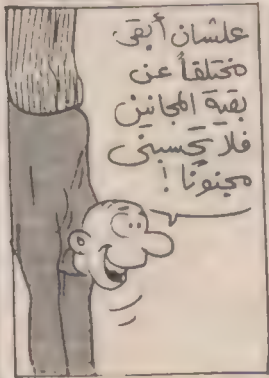 علشان أبقى
مختلفاً عن
بقية المجانين
فلا تحسبنى
مجنونا !